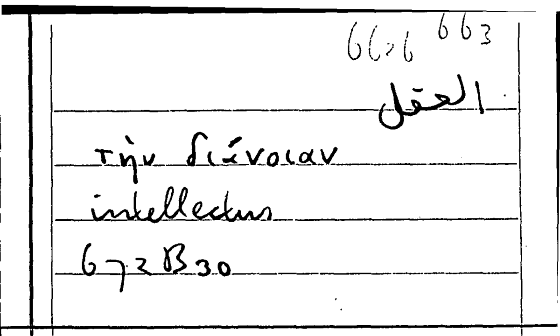 66,6 663
العقل
τὴν διάνοιαν
intellectus
672B30